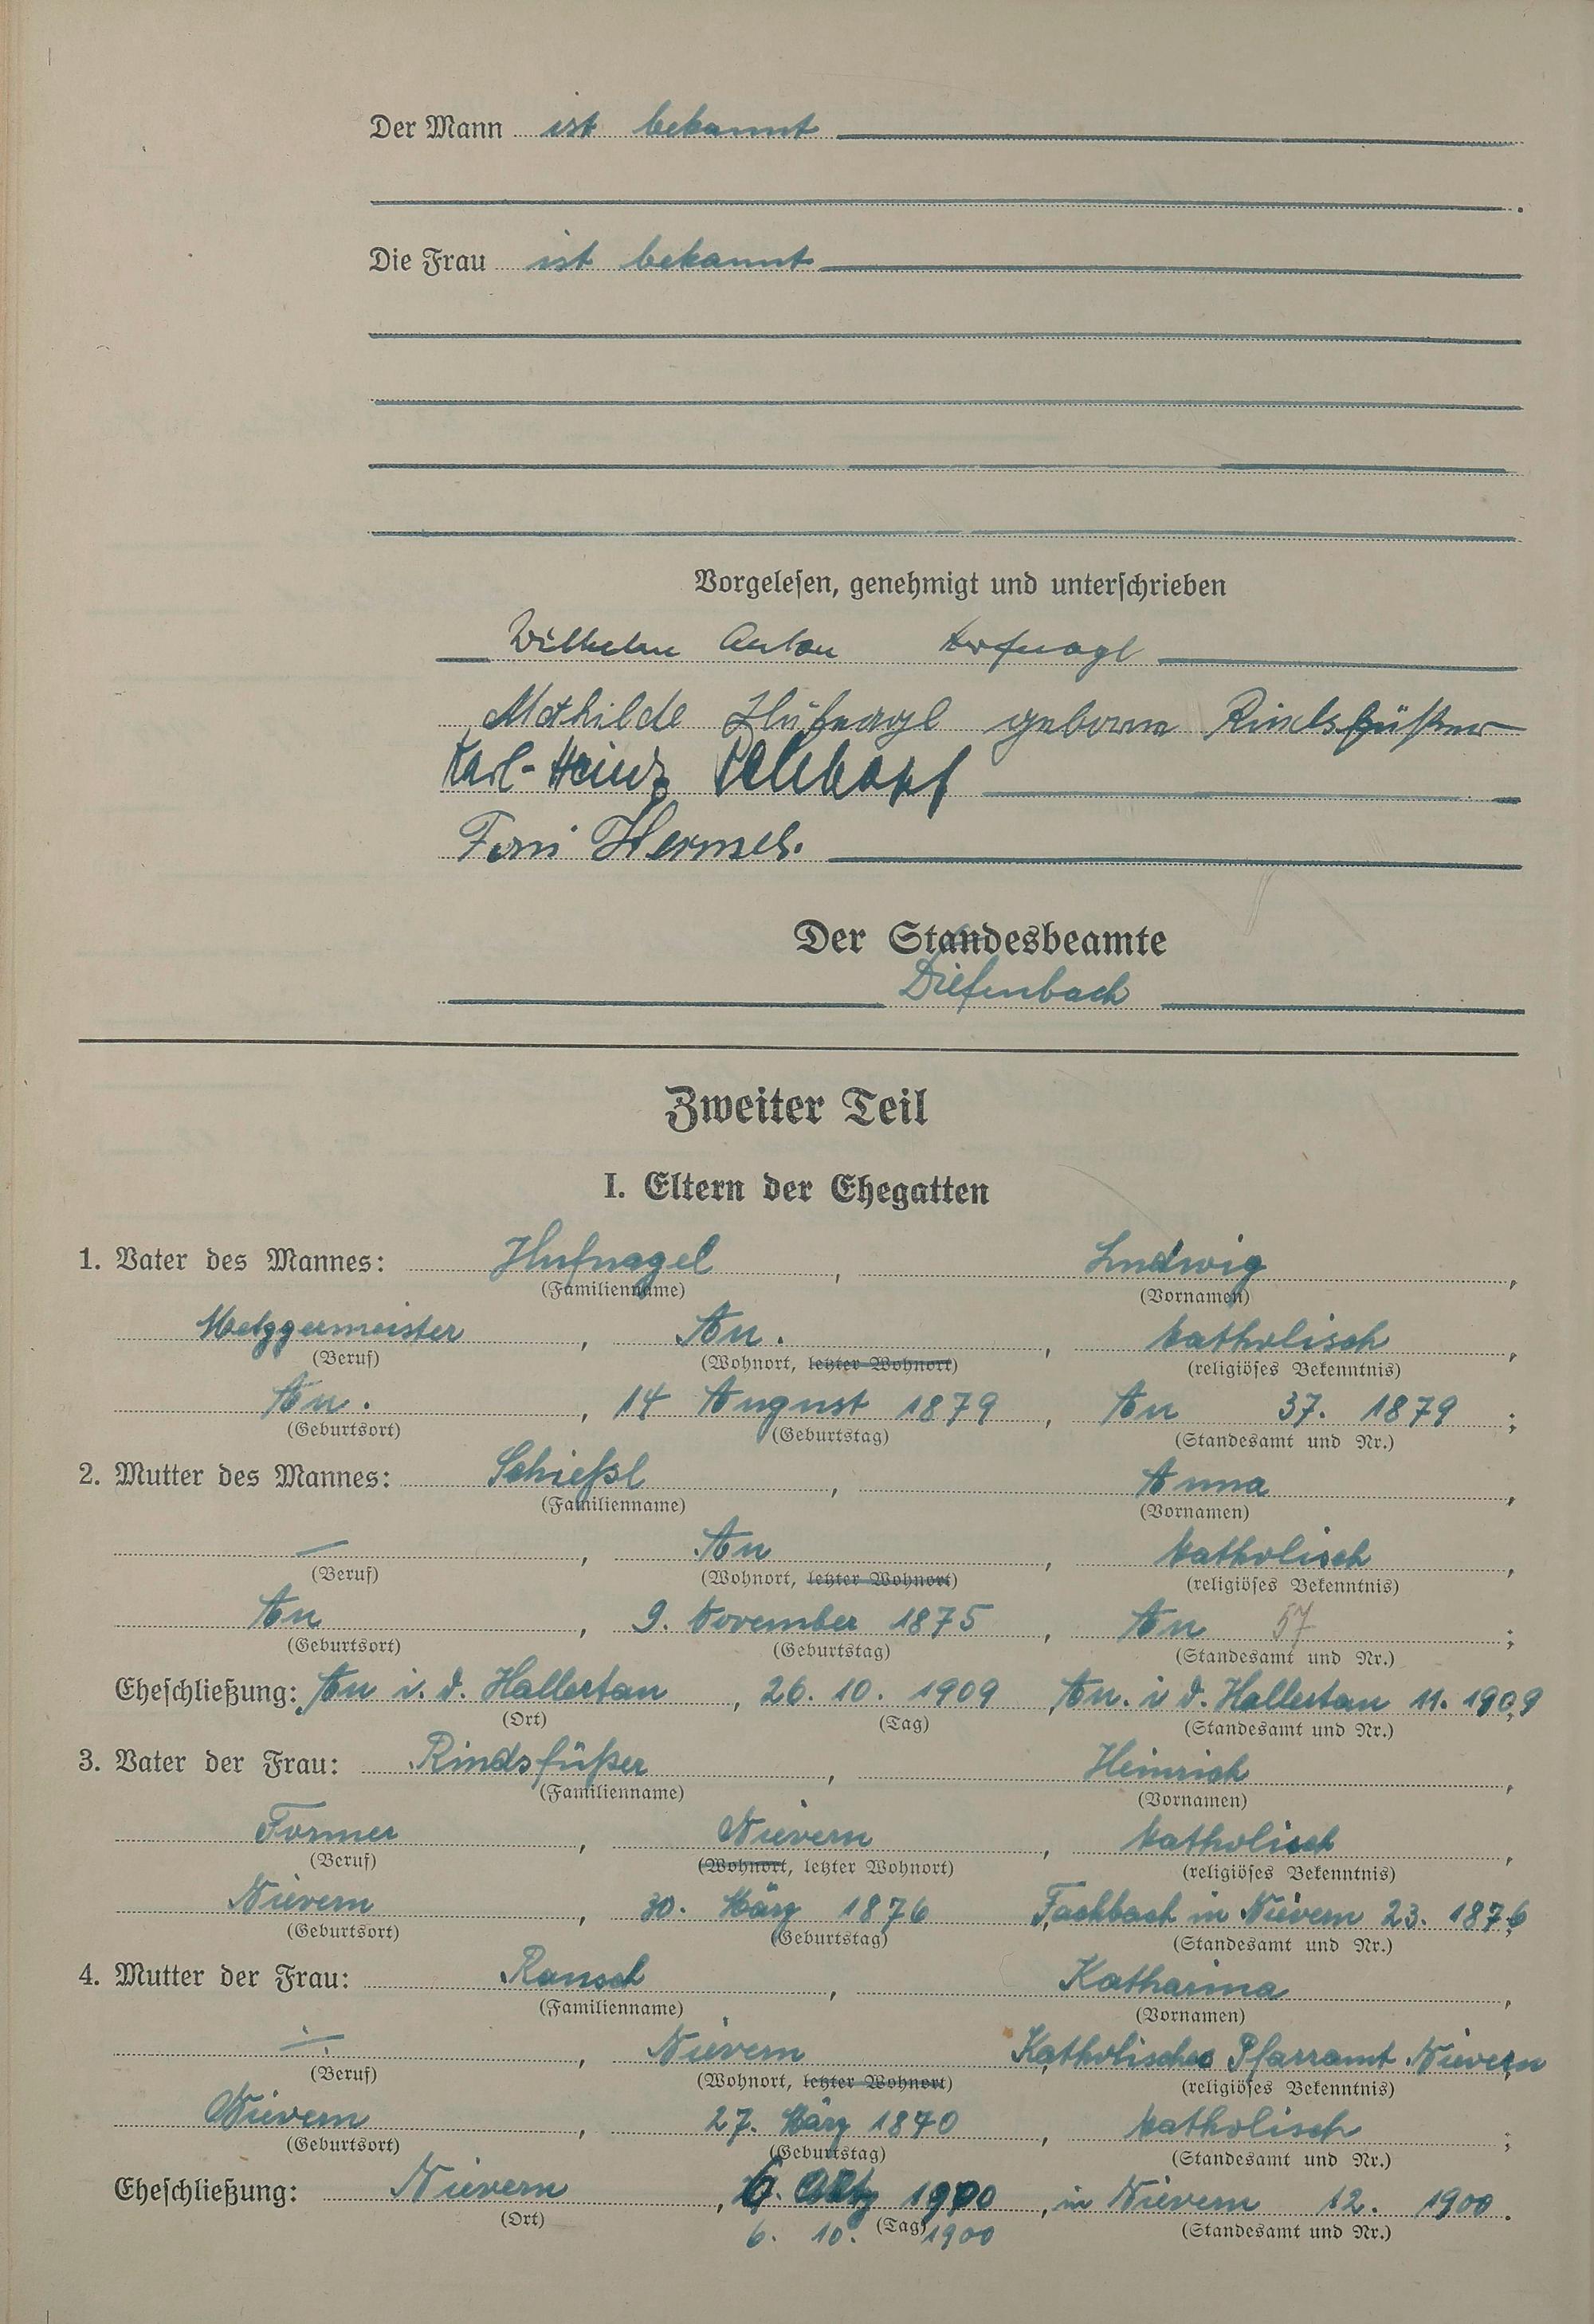 Der Mann ist bekannt
Die Frau ist bekannt
Vorgelesen, genehmigt und unterschrieben
Wilhelm Anton Hufnagl
Mathilde Hüfnagl geborne Rindsfüßer
Karl-Heinz
Hermes.
Der Standesbeamte
Diefenbach
Zweiter Teil
I. Eltern der Ehegatten
1. Vater des Mannes: Hufnagel, Ludwig,
(Familienname) (Vornamen)
Metzgermeister, Au., katholisch,
(Beruf) (Wohnort, letzter Wohnort) (religiöses Bekenntnis)
Au., 14 August 1879, Au 37. 1879;
(Geburtsort) (Geburtstag) (Standesamt und Nr.)
2. Mutter des Mannes: Schießl, Anna,
(Familienname) (Vornamen)
—, Au, katholisch,
(Beruf) (Wohnort, letzter Wohnort) (religiöses Bekenntnis)
Au, 9. November 1875, Au 57;
(Geburtsort) (Geburtstag) (Standesamt und Nr.)
Eheschließung: Au i. d. Hallertau, 26. 10. 1909, Au. i d. Hallertau 11. 1909;
(Ort) (Tag) (Standesamt und Nr.)
3. Vater der Frau: Rindsfüßer, Heinrich,
(Familienname) (Vornamen)
Former, Nievern, katholisch,
(Beruf) (Wohnort, letzter Wohnort) (religiöses Bekenntnis)
Nievern, 30. März 1876, Fachbach in Nievern 23. 1876;
(Geburtsort) (Geburtstag) (Standesamt und Nr.)
4. Mutter der Frau: Rausch, Katharina,
(Familienname) (Vornamen)
—, Nievern, Katholisches Pfarramt Nievern,
(Beruf) (Wohnort, letzter Wohnort) (religiöses Bekenntnis)
Nievern, 27. März 1870, katholisch;
(Geburtsort) (Geburtstag) (Standesamt und Nr.)
Eheschließung: Nievern, 6. 1900, in Nievern 12. 1900.
(Ort) (Tag) (Standesamt und Nr.)
6. 10. 1900